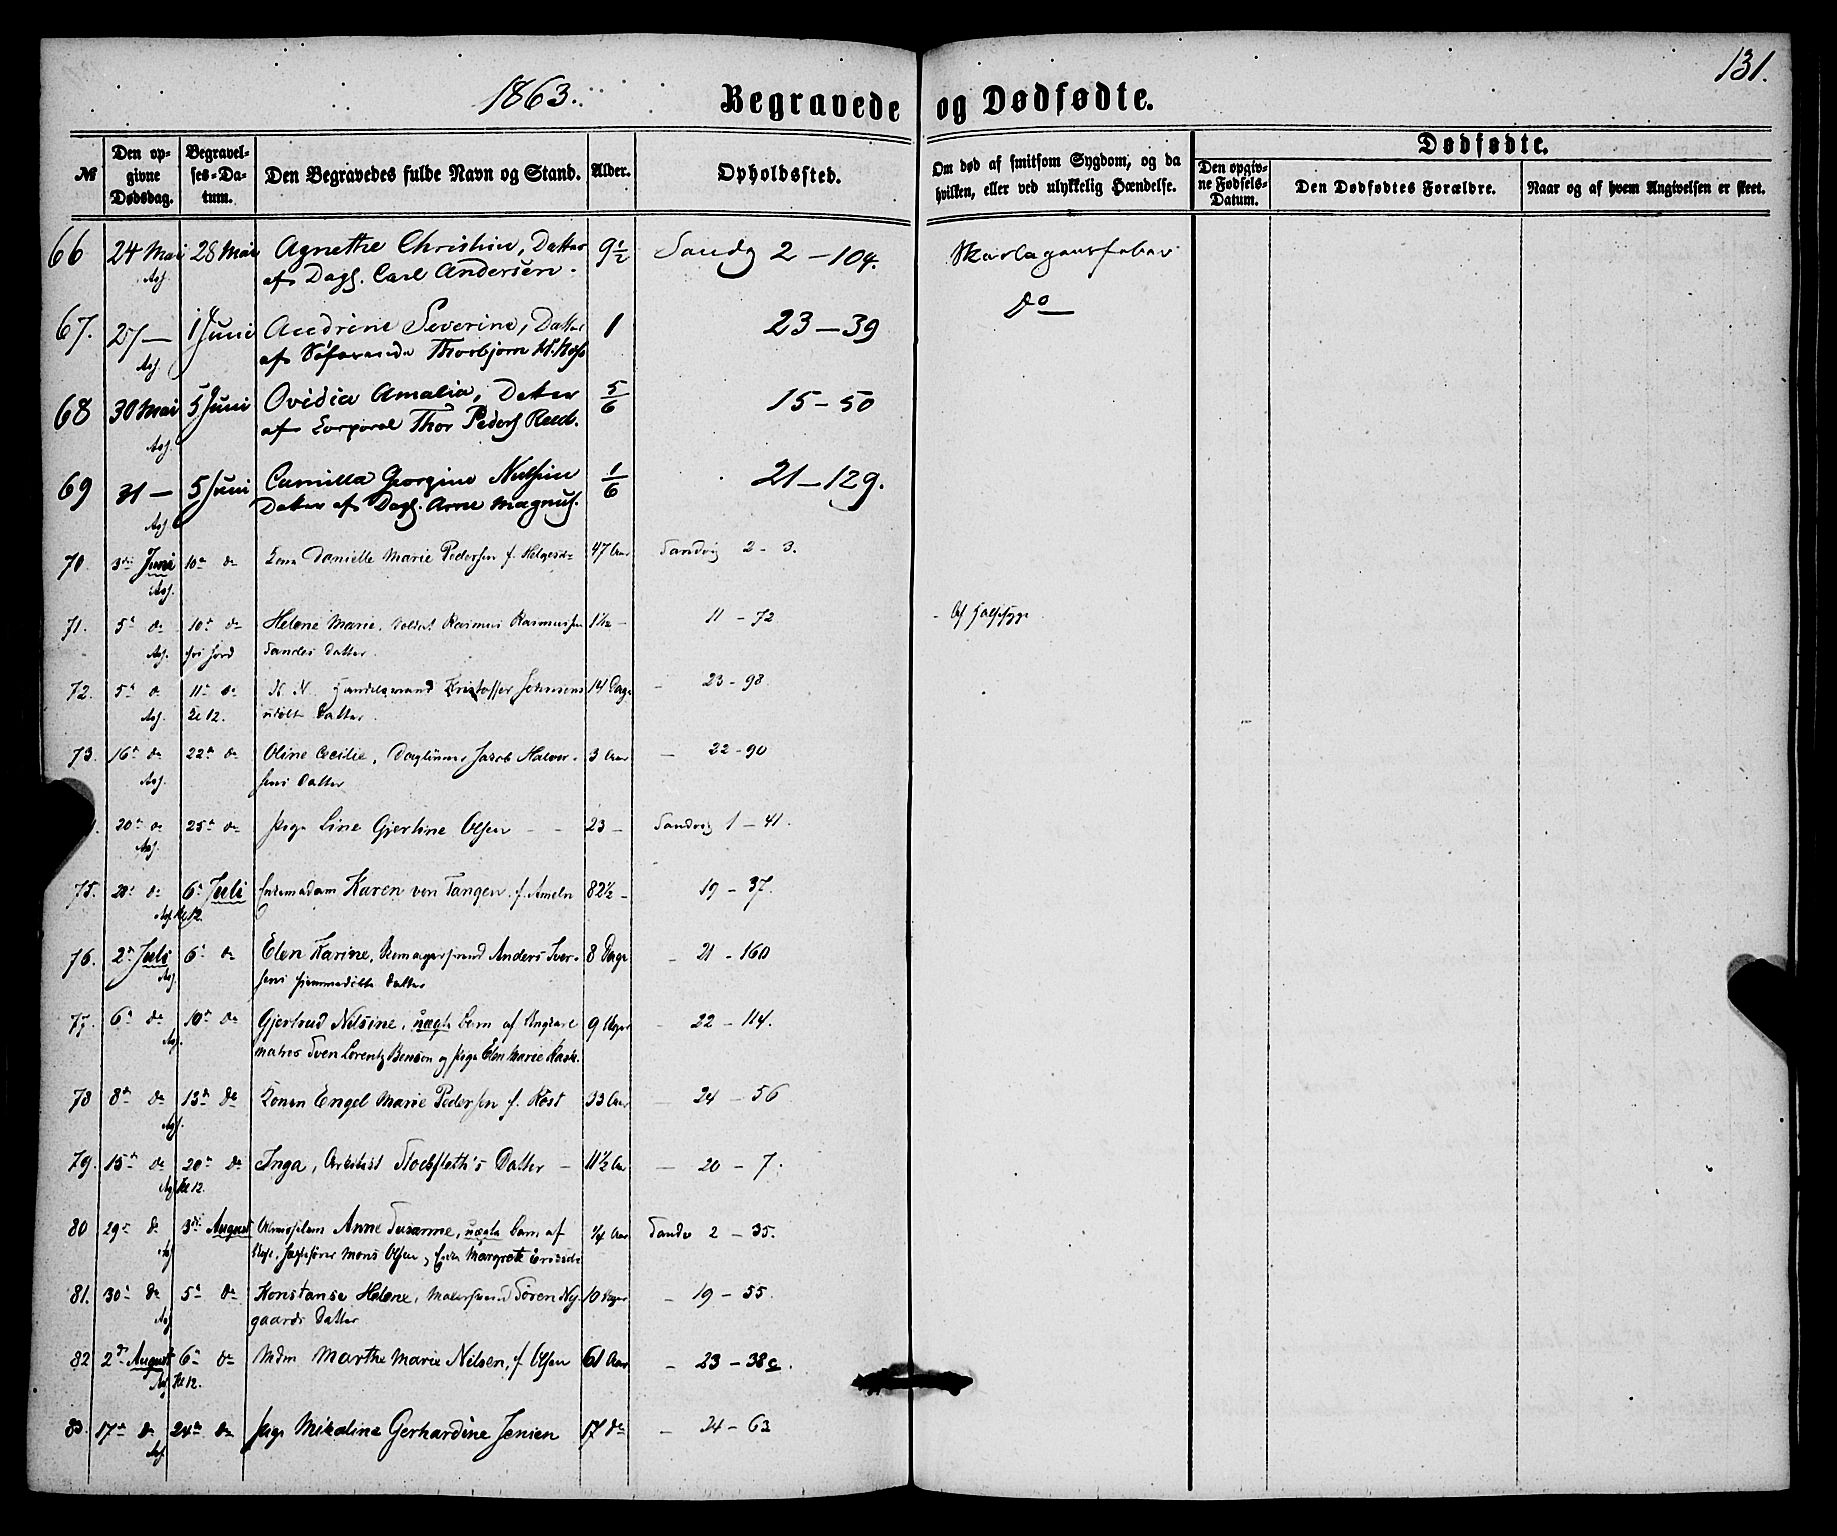 131.
1863.
Begravede og Dødfødte.
№
Den opgivne Dødsdag.
Begravelses-Datum.
Den Begravedes fulde Navn og Stand.
Alder.
Opholdssted.
Om død af smitsom Sygdom, og da hvilken, eller ved ulykkelig Hændelse.
Dødfødte.
Den opgivne Fødsels-Datum.
Den Dødfødtes Forældre.
Naar og af hvem Angivelsen er skeet.
66 24 Mai 28 Mai Agnethe Christine, Datter 9½ Sandv 2 – 104. Skarlagensfeber
af Dagl. Carl Andersen.
67. 27 — 1 Juni Andrine Severine, Datter 1 23 – 39 Do
af Søfarende Thorbjørn
68 30 Mai 5 Juni Ovidia Amalia, Datter 5/6 15 – 50
af Corporal Thor Peders
69 31 — 5 Juni Camilla Georgine 1/6 21 – 129.
Datter af Dagl. Arne Magnus.
70. 3die Juni 10de do Kone Danielle Marie Pedersen f. Helgesd 47 Aar Sandvig 2 – 3.
71. 5te do 10de do Helene Marie, Soldat Rasmus Rasmussen 1½ – 11 – 72 Af Halssyge
Datter.
72. 5te do 11te do N. N. Handelsmand Kristoffer Johnsens 14 Dage – 23 – 98.
Kl 12. udøbte Datter.
73. 16de do 22de do Oline Cecilie, Daglönner Jacob Halvor- 3 Aar – 22 – 90
sens Datter
20de do 25de do Pige Line Gjertine Olsen – – 23 – Sandvig 1 – 41.
75. do 6te Juli Karen von Tangen. f. Ameln 82½ – 19 – 37.
Kl 12.
76. 2den Juli 6te do Elen Karine, Anders Iver- 8 Dage – 21 – 160
sens hjemmedøbte Datter
77. 6te do 10de do Gjertrud Nilsine, uægte Barn af Ungkarl 9 Uger – 22 – 114.
Matros Sven Lorentz Bensen og Pige Elen Marie
78 8de do 13de do Konen Engel Marie Pedersen f. Köst 33 Aar 24 – 56
79. 15de do 20de do Inga, Stockfleth's Datter – 11½ Aar – 20 – 7.
Kl 12.
80 29de do 3die August Anne Susanne, uægte Barn af ¼ Aar Sandv 2 – 35.
Mons Olsen, Margrete
81. 30te do 5te do Konstanse Helene, Malersvend Sören Ny- 10 Uger – 19 – 55.
gaards Datter
82 2den August 6te do Mdm Marthe Marie Nilsen, f. Olsen 61 Aar – 23 – 38c.
Kl 12.
83. 17de do 24de do Pige Mikaline Gerhardine Jensen 17 do – 24 – 63